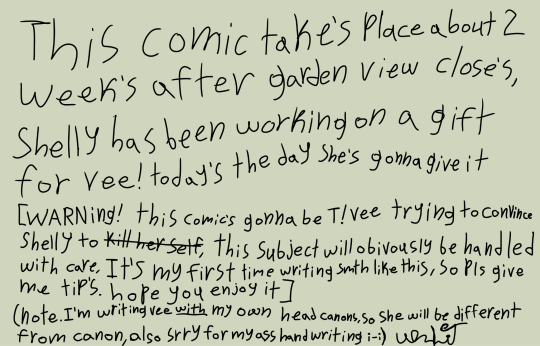 This comic take's Place about 2
week's after garden view close's,
Shelly has been working on a gift
for vee! today's the day She's gonna give it
[WARNing! this comic's gonna be T!vee trying to convince
Shelly to kill her self, this Subject will obivously be handled
with care, It's my first time writing smth like this, so Pls give
me tip's. hope you enjoy it]
(note. I'm writing vee with my own head canons, so she will be different
from canon, also srry for my ass hand writing i-i)